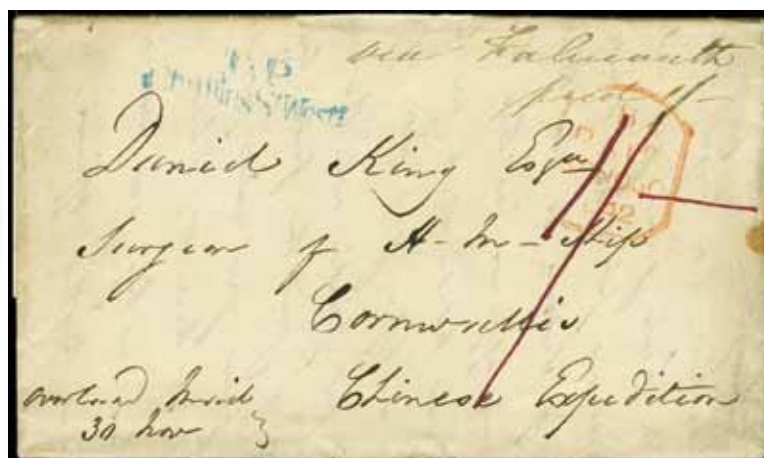 via Falmouth
paid 1/-
T.P
Daniel King Esqre
Surgeon of H-M-Ship
Cornwallis
Chinese Expedition
overland Mail
30 Nov